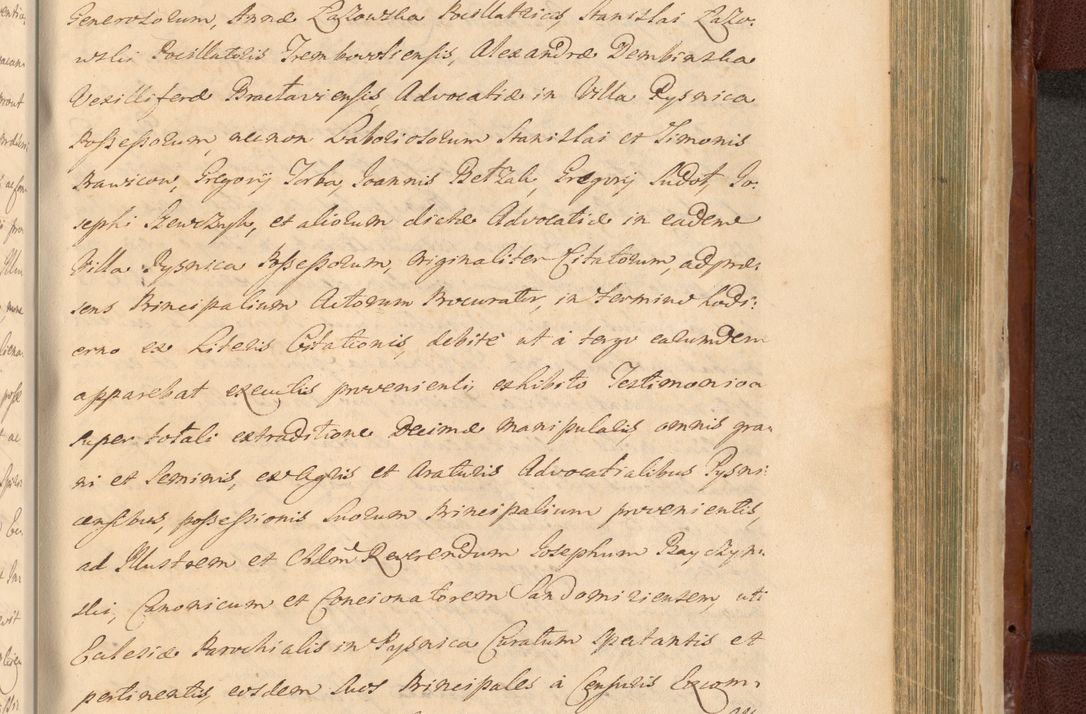 Generosorum, Annæ Łazowska Pocillatricis Stanislai Łazo-
wski Pocillatoris Trembovliensis, Alexandræ Dembinska
Vexilliferæ Braclaviensis, Advocatiæ in Villa Rysnica
Possessorum, necnon Laboriosorum Stanislai et Simonis
Krawicow, Gregorij Torba, Joannis Betzak, Gregorij Sudoł, Jo-
sephi Szewczyk, et aliorum dictæ Advocatiæ in eadem
Villa Rysnica Possessorum, originaliter Citatorum, ad præ-
sens Principalium Actorum Procurator, in termino hodi-
erno ex Literis Citationis, debitè ut à tergo earumdem
apparebat executis provenienti, exhibito Testimonio
super totali extraditione Decimæ manipularis omnis gra-
ni et Seminis, ex Agris et Araturis Advocatialibus Rysni-
censibus, possessionis Suorum Principalium provenientis,
ad Illustrem et Adm Reverendum Josephum Rayczyn-
ski, Canonicum et Concionatorem Sandomiriensem, uti
Ecclesiæ Parochialis in Rysnica Curatum spectantis et
pertinentis, eosdem Suos Principales à Censuris Excom-